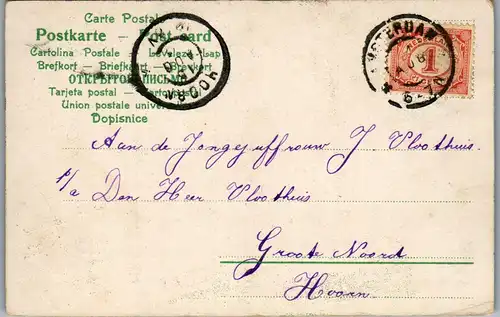 Carte Postale
Postkarte — Post card
Cartolina Postale — Levelező-Lap
Brefkort — Briefkaart — Brevkort
ОТКРЫТОЕ ПИСЬМО
Tarjeta postal —
Union postale universelle
Dopisnice
HOORN
AMSTERDAM
1
Aan de Jongejuffrouw J. Vloothuis.
p/a Den Heer Vloothuis
Groote Noord
Hoorn.